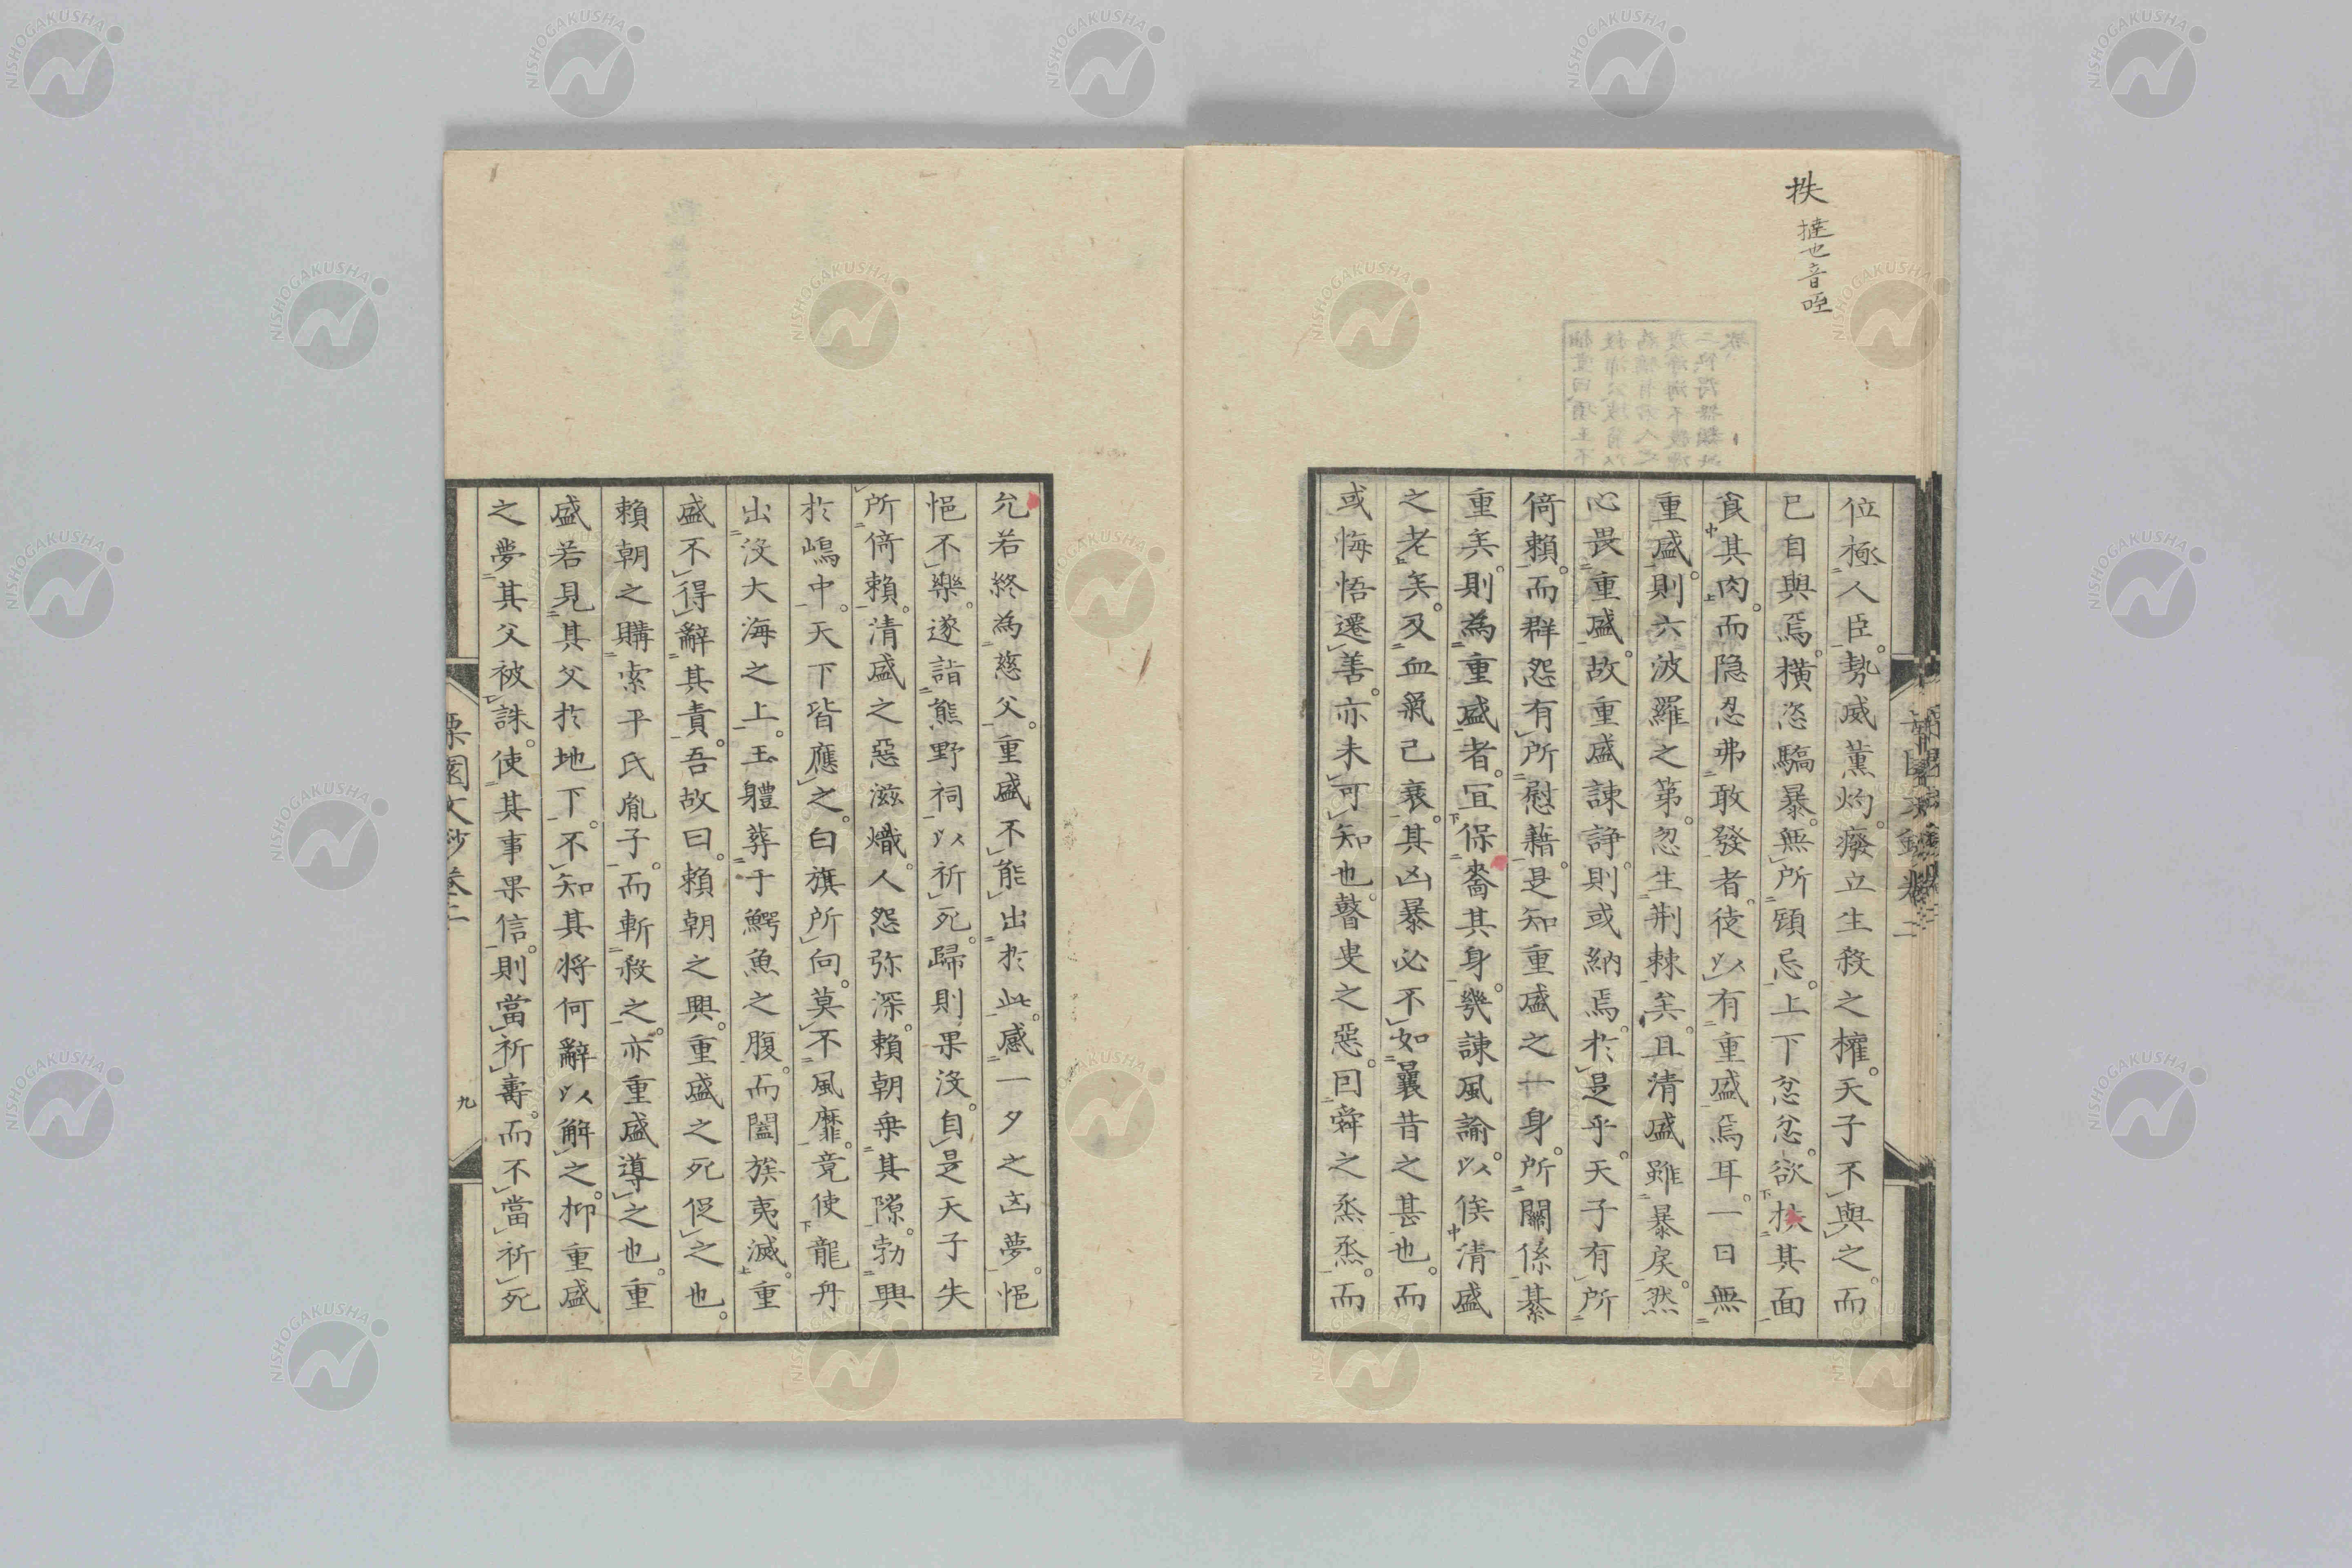 抶 撻也音咥
位極人臣。勢威薫灼。癈立生殺之權。天子不與之。而
已自與焉。橫恣驕暴。無所顧忌。上下忿忿。欲抶其面
食其肉。而隐忍弗敢發者。徒以有重盛焉耳。一日無
重盛。則六波羅之第。忽生荆棘矣。且清盛雖暴戾。然
心畏重盛。故重盛諌諍。則或納焉。於是乎。天子有所
倚賴。而群怨有所慰藉。是知重盛之一身。所關係綦
重矣。則為重盛者。冝保嗇其身。幾諌風諭。以俟清盛
之老矣。及血氣已衰。其凶暴必不如曩昔之甚也。而
或悔悟遷善。亦未可知也。瞽叟之惡。囙舜之烝烝。而
允若終為慈父。重盛不能出於此。感一夕之凶夢。悒
悒不樂。遂詣熊野祠。以祈死。歸則果沒。自是天子失
所倚賴。清盛之惡滋熾。人怨弥深。賴朝乗其隙。勃興
於嶋中。天下皆應之。白旗所向。莫不風靡。竟使龍舟
出沒大海之上。玉軆葬于鰐魚之腹。而闔族夷滅。重
盛不得辭其責。吾故曰。賴朝之興。重盛之死促之也。
賴朝之購索平氏胤子。而斬殺之。亦重盛導之也。重
盛若見其父於地下。不知其将何辭以解之。抑重盛
之夢其父被誅。使其事果信。則當祈壽。而不當祈死
栗園文鈔 卷二
九